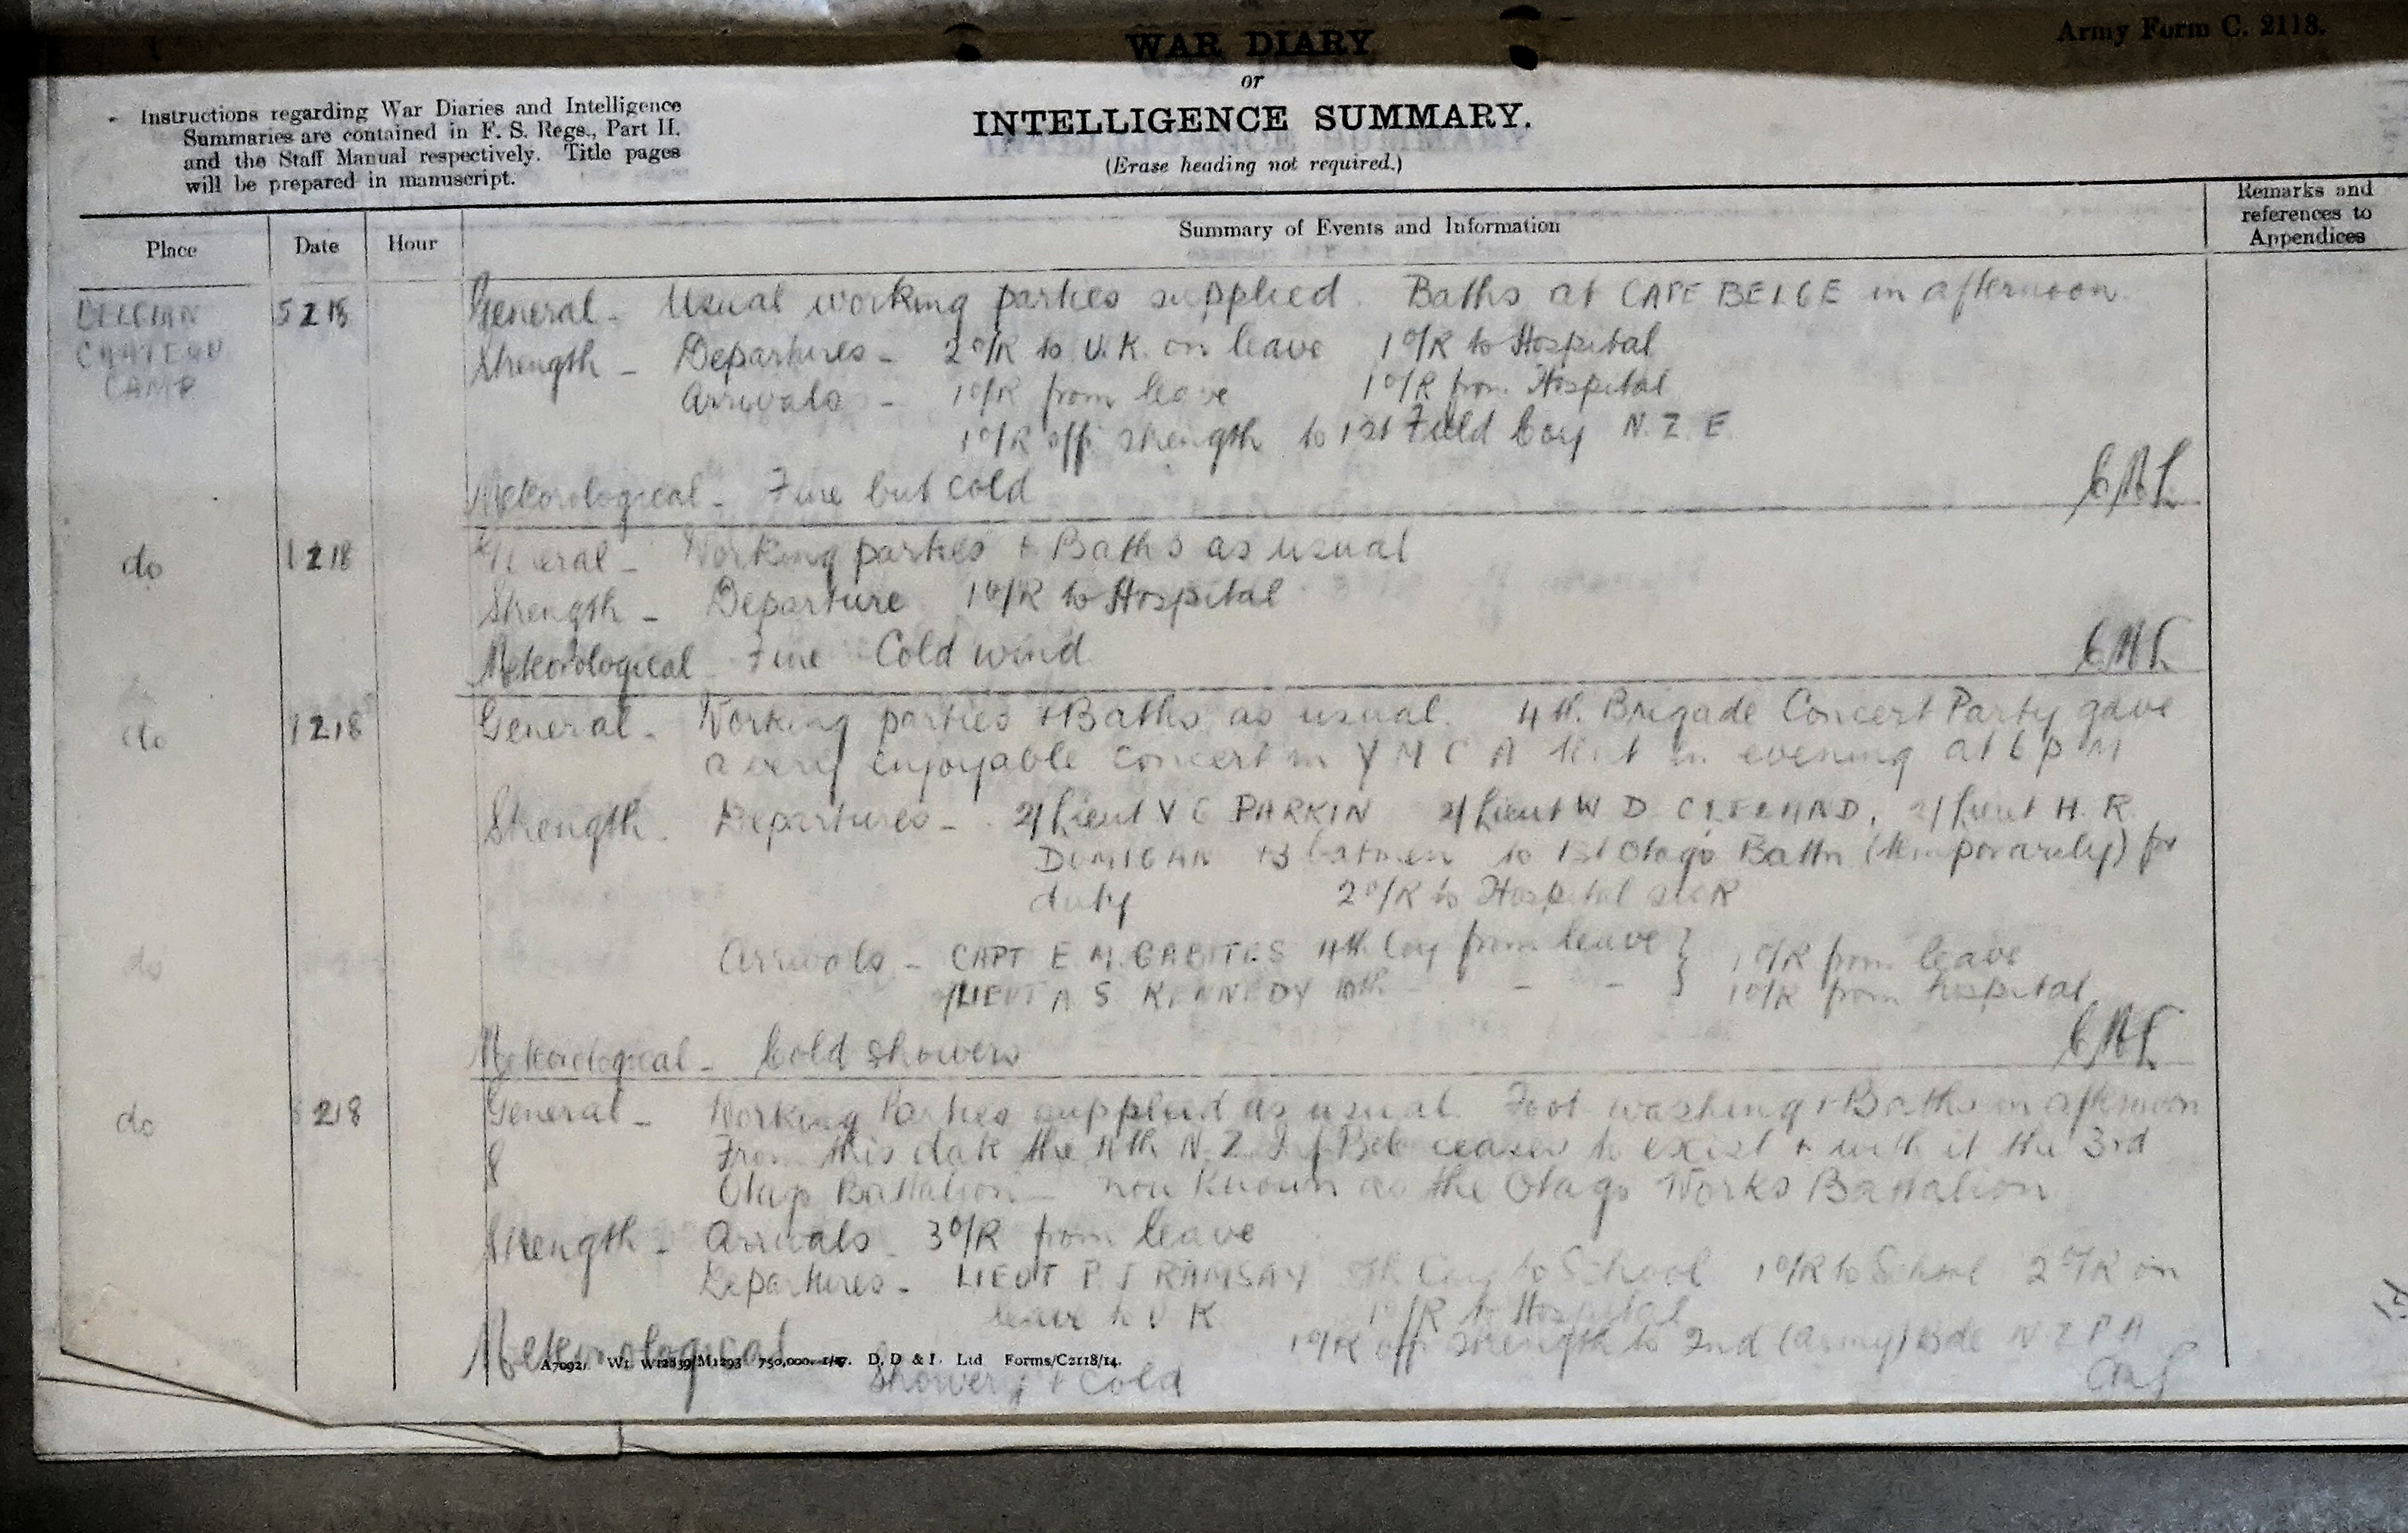 WAR DIARY
Army Form C. 2118.
or
INTELLIGENCE SUMMARY.
(Erase heading not required.)
Instructions regarding War Diaries and Intelligence
Summaries are contained in F. S. Regs., Part II.
and the Staff Manual respectively. Title pages
will be prepared in manuscript.
Place
Date
Hour
Summary of Events and Information
Remarks and
references to
Appendices
BELGIAN
CHATEAU
CAMP
5 2 18
General - Usual working parties supplied. Baths at CAFE BELGE in afternoon
Strength - Departures - 2 O/R to U.K. on leave 1 O/R to Hospital
Arrivals - 1 O/R from leave 1 O/R from Hospital
1 O/R off strength to 1st Field Coy N. Z. E
Meteorological - Fine but cold
do
2 18
General - Working parties + Baths as usual
Strength - Departure 1 O/R to Hospital
Meteorological - Fine Cold wind
do
2 18
General - Working parties + Baths as usual. 4th. Brigade Concert Party gave
a very enjoyable concert in Y M C A Hut in evening at 6 p m
Strength. Departures - 2/Lieut V G PARKIN 2/Lieut W D CLELAND, 2/Lieut H. R.
DUMIGAN + 3 batmen to 1st Otago Battn (temporarily) for
duty 2 O/R to Hospital sick
do
Arrivals - CAPT E M. GABITES 4th Coy from leave } 1 O/R from leave
2/LIEUT A S KENNEDY 10th - - } 1 O/R from hospital
Meteorological - Cold showers
do
2 18
General - Working Parties supplied as usual. Foot washing + Baths in afternoon
From this date the 4th N.Z. Inf Bde ceases to exist + with it the 3rd
Otago Battalion - now known as the Otago Works Battalion
Strength - Arrivals - 3 O/R from leave
Departures - LIEUT P J RAMSAY Coy to School 1 O/R to School 2 O/R on
leave to U K 1 O/R to Hospital
1 O/R off strength to 2nd (Army) Bde N Z F A
Meteorological
Showery + Cold
A7092. Wt. W12839/M1293 750,000. 1/17. D. D & L. Ltd Forms/C2118/14.